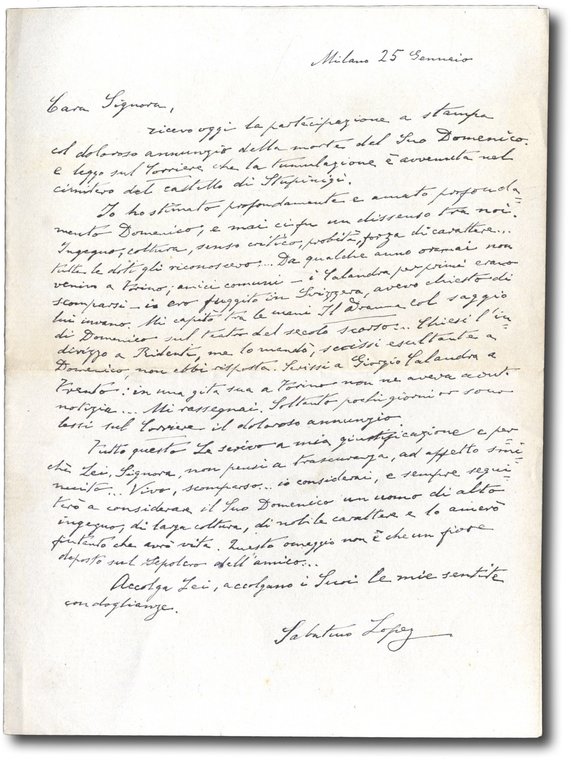 Milano 25 Gennaio
Cara Signora,
ricevo oggi la partecipazione a stampa
col doloroso annunzio della morte del Suo Domenico.
e leggo sul Corriere che la tumulazione è avvenuta nel
cimitero del castello di Stupinigi.
Io ho stimato profondamente e amato, profonda-
mente Domenico, e mai ci fu un dissenso tra noi.
Ingegno, coltura, senso critico, probità, forza di carattere...
tutte le doti gli riconoscevo... Da qualche anno oramai non
venivo a Torino, amici comuni - i Calandra, per primi erano
scomparsi - io ero fuggito in Svizzera, avevo chiesto di
lui invano. Mi capitò tra le mani Il Dramma col saggio
di Domenico sul teatro del secolo scorso... Chiesi l'in-
dirizzo a Ridenti, me lo mandò, scrissi esultante a
Domenico, non ebbi risposta. Scrissi a Giorgio Calandra a
Trento: in una gita sua a Torino non ne aveva avuto
notizie... Mi rassegnai. Soltanto pochi giorni or sono
lessi sul Corriere il doloroso annunzio
Tutto questo Le scrivo a mia giustificazione e per-
chè Lei, Signora, non pensi a trascuranza, ad affetto smi-
nuito... Vivo, scomparso... io considerai, e sempre segui-
terò a considerare il Suo Domenico un uomo di alto
ingegno, di larga coltura, di nobile carattere e lo amerò
fintanto che avrò vita. Questo omaggio non è che un fiore
deposto sul sepolcro dell'amico...
Accolga Lei, accolgano i Suoi le mie sentite
condoglianze.
Sabatino Lopez